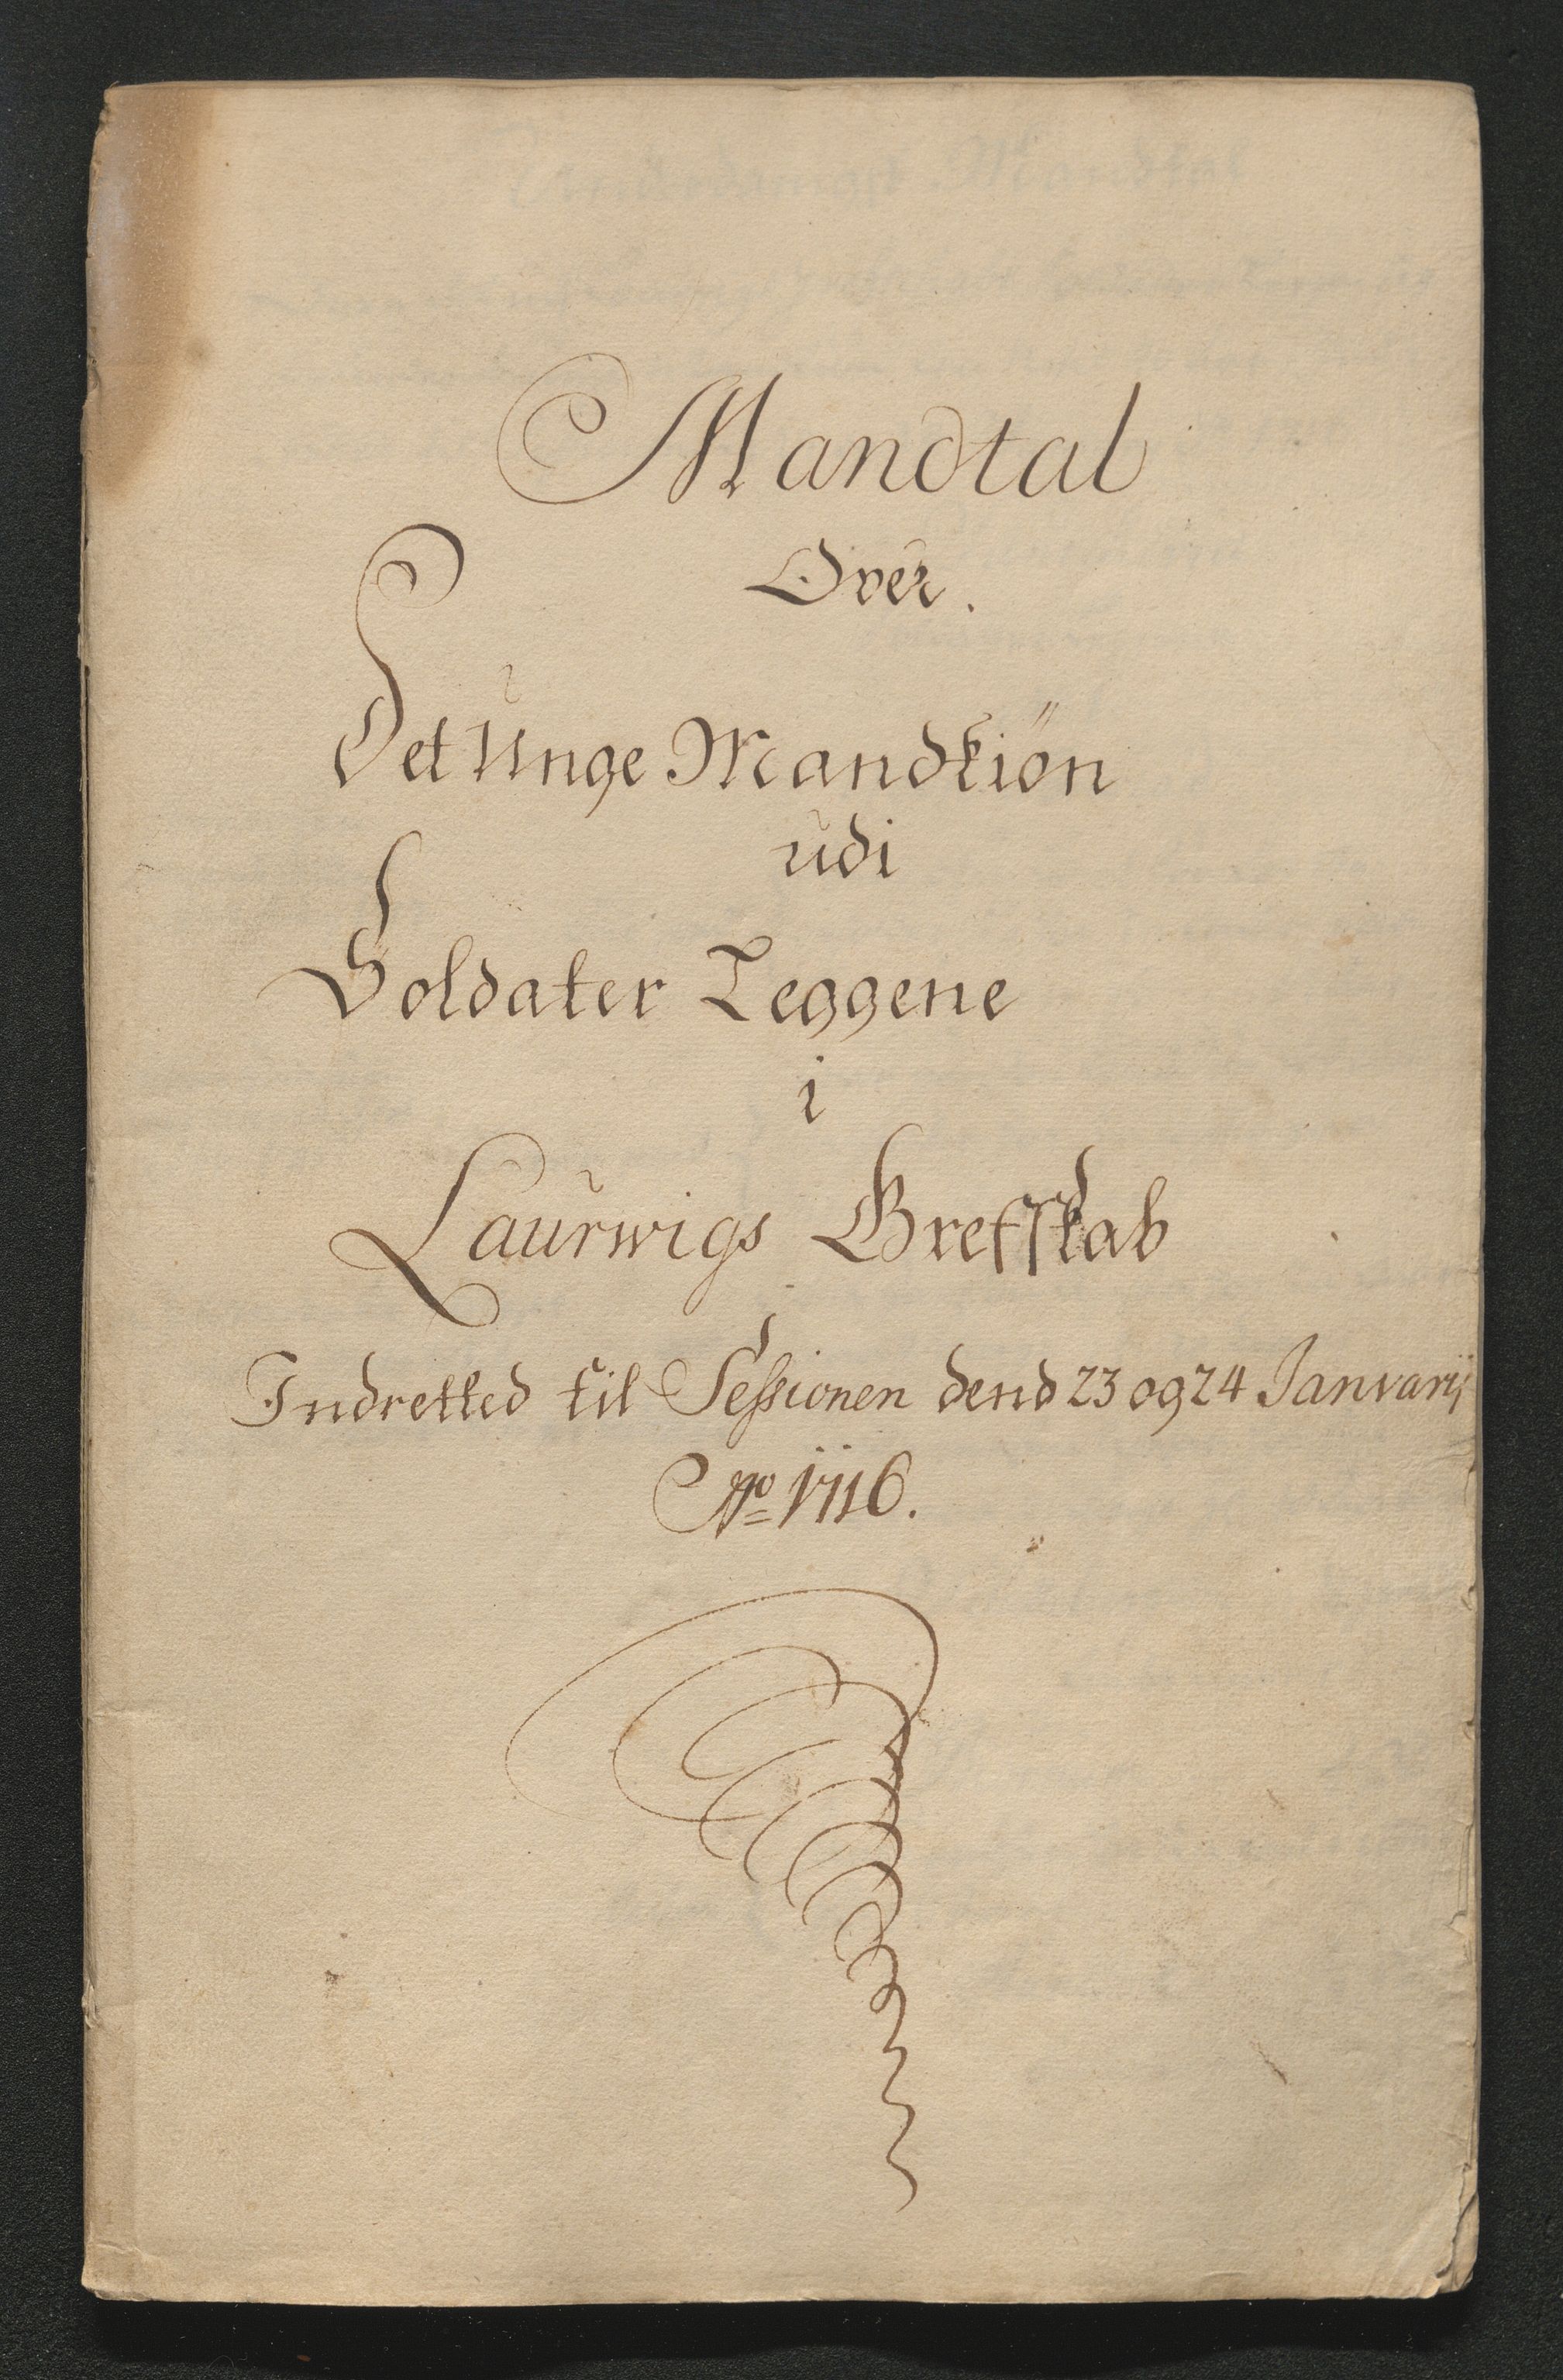 Mandtal
Over.
Det Unge Mandkiön
udi
Soldater Leggene
i
Laurwigs Grefskab
Indretted til Sessionen dend 23 og 24 Januarij
Ao 1716.